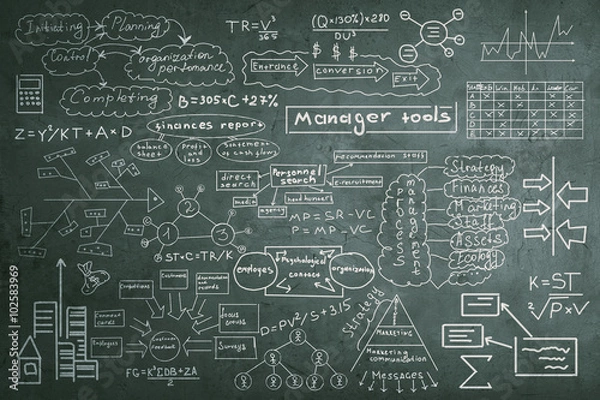 Initiating
Planning
Control
organization
performance
Completing
TR=V³/365
(Q×130%)×280
DU³
$ $ $
$ $
Entrance
conversion
Exit
B=305×C+27%
Z=Y²/KT+A×D
Manager tools
finances report
balance
sheet
Profit
and
loss
Statement
of cash flows
recommendation staff
direct
search
Personnel
search
E-recruitment
media
head hunter
agency
MP=SR-VC
P=MP-VC
process
management
Strategy
Finances
Marketing
Staff
Assets
Ecology
1
2
3
ST•C=TR/K
employees
Psychological
contacts
organization
K=ST
²√P×V
Competitions
Customers
Comment
cards
Employees
Customer
Feedback
focus
Surveys
FG=K²ΣDB+ZA
2
D=PV²/S+3,15
Strategy
Marketing
Marketing
communication
Messages
Σ
Adobe Stock | #102583969